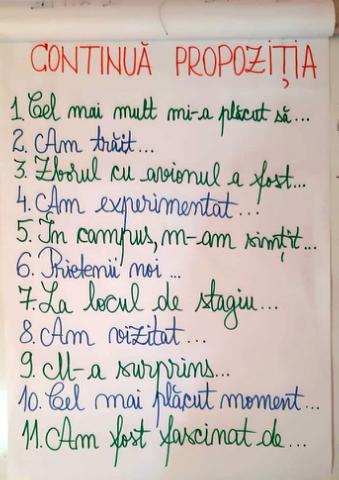 CONTINUĂ PROPOZIȚIA
1. Cel mai mult mi-a plăcut să...
2. Am trăit...
3. Zborul cu avionul a fost...
4. Am experimentat...
5. În campus, m-am simțit...
6. Prietenii noi...
7. La locul de stagiu...
8. Am vizitat...
9. M-a surprins...
10. Cel mai plăcut moment...
11. Am fost fascinat de...